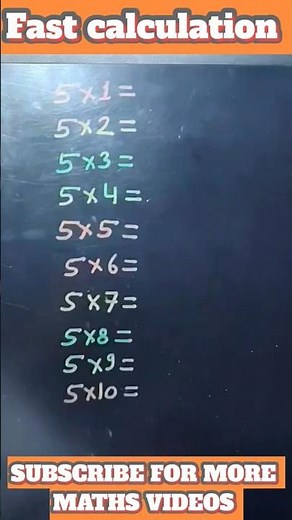 Fast calculation
5×1=
5×2=
5×3=
5×4=
5×5=
5×6=
5×7=
5×8=
5×9=
5×10=
SUBSCRIBE FOR MORE
MATHS VIDEOS